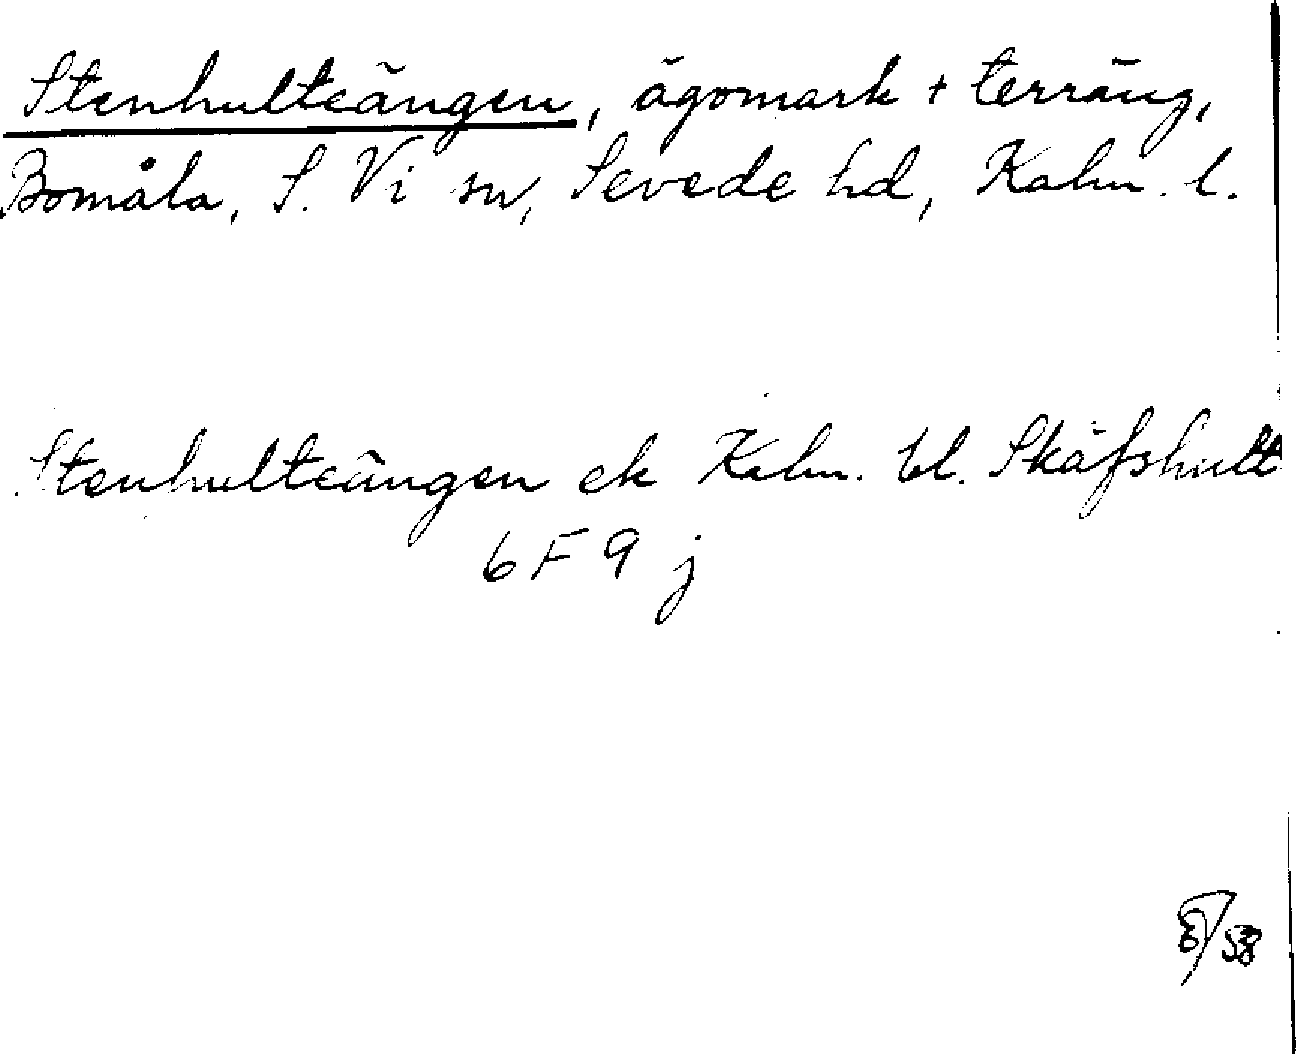 Stenhulteängen, ägomark + terräng,
Bomåla, S. Vi sn, Sevede hd, Kalm. l.
Stenhulteängen ek Kalm. bl. Skäfshult
6 F 9 j